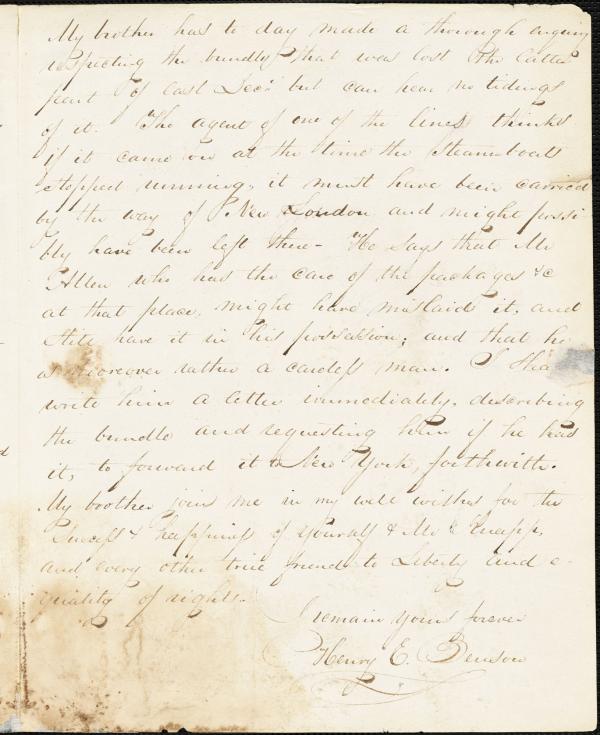 My brother has to day made a thorough enquiry
respecting the bundle that was lost the latter
part of last Decr but can hear no tidings
of it. The agent of one of the lines thinks
if it came on at the time the steam-boats
stopped running, it must have been carried
by the way of New London and might possi
bly have been left there- He says that Mr
Allen who has the care of the packages &c
at that place, might have mislaid it, and
still have it in his possession; and that he
is moreover rather a careless man. I sha
write him a letter immediately, describing
the bundle and requesting him if he has
it, to forward it to New York, forthwith.
My brother joins me in my well wishes for the
success & happiness of yourself & Mr Knapp,
and every other true friend to Liberty and e-
quality of rights.
I remain yours forever
Henry E. Benson